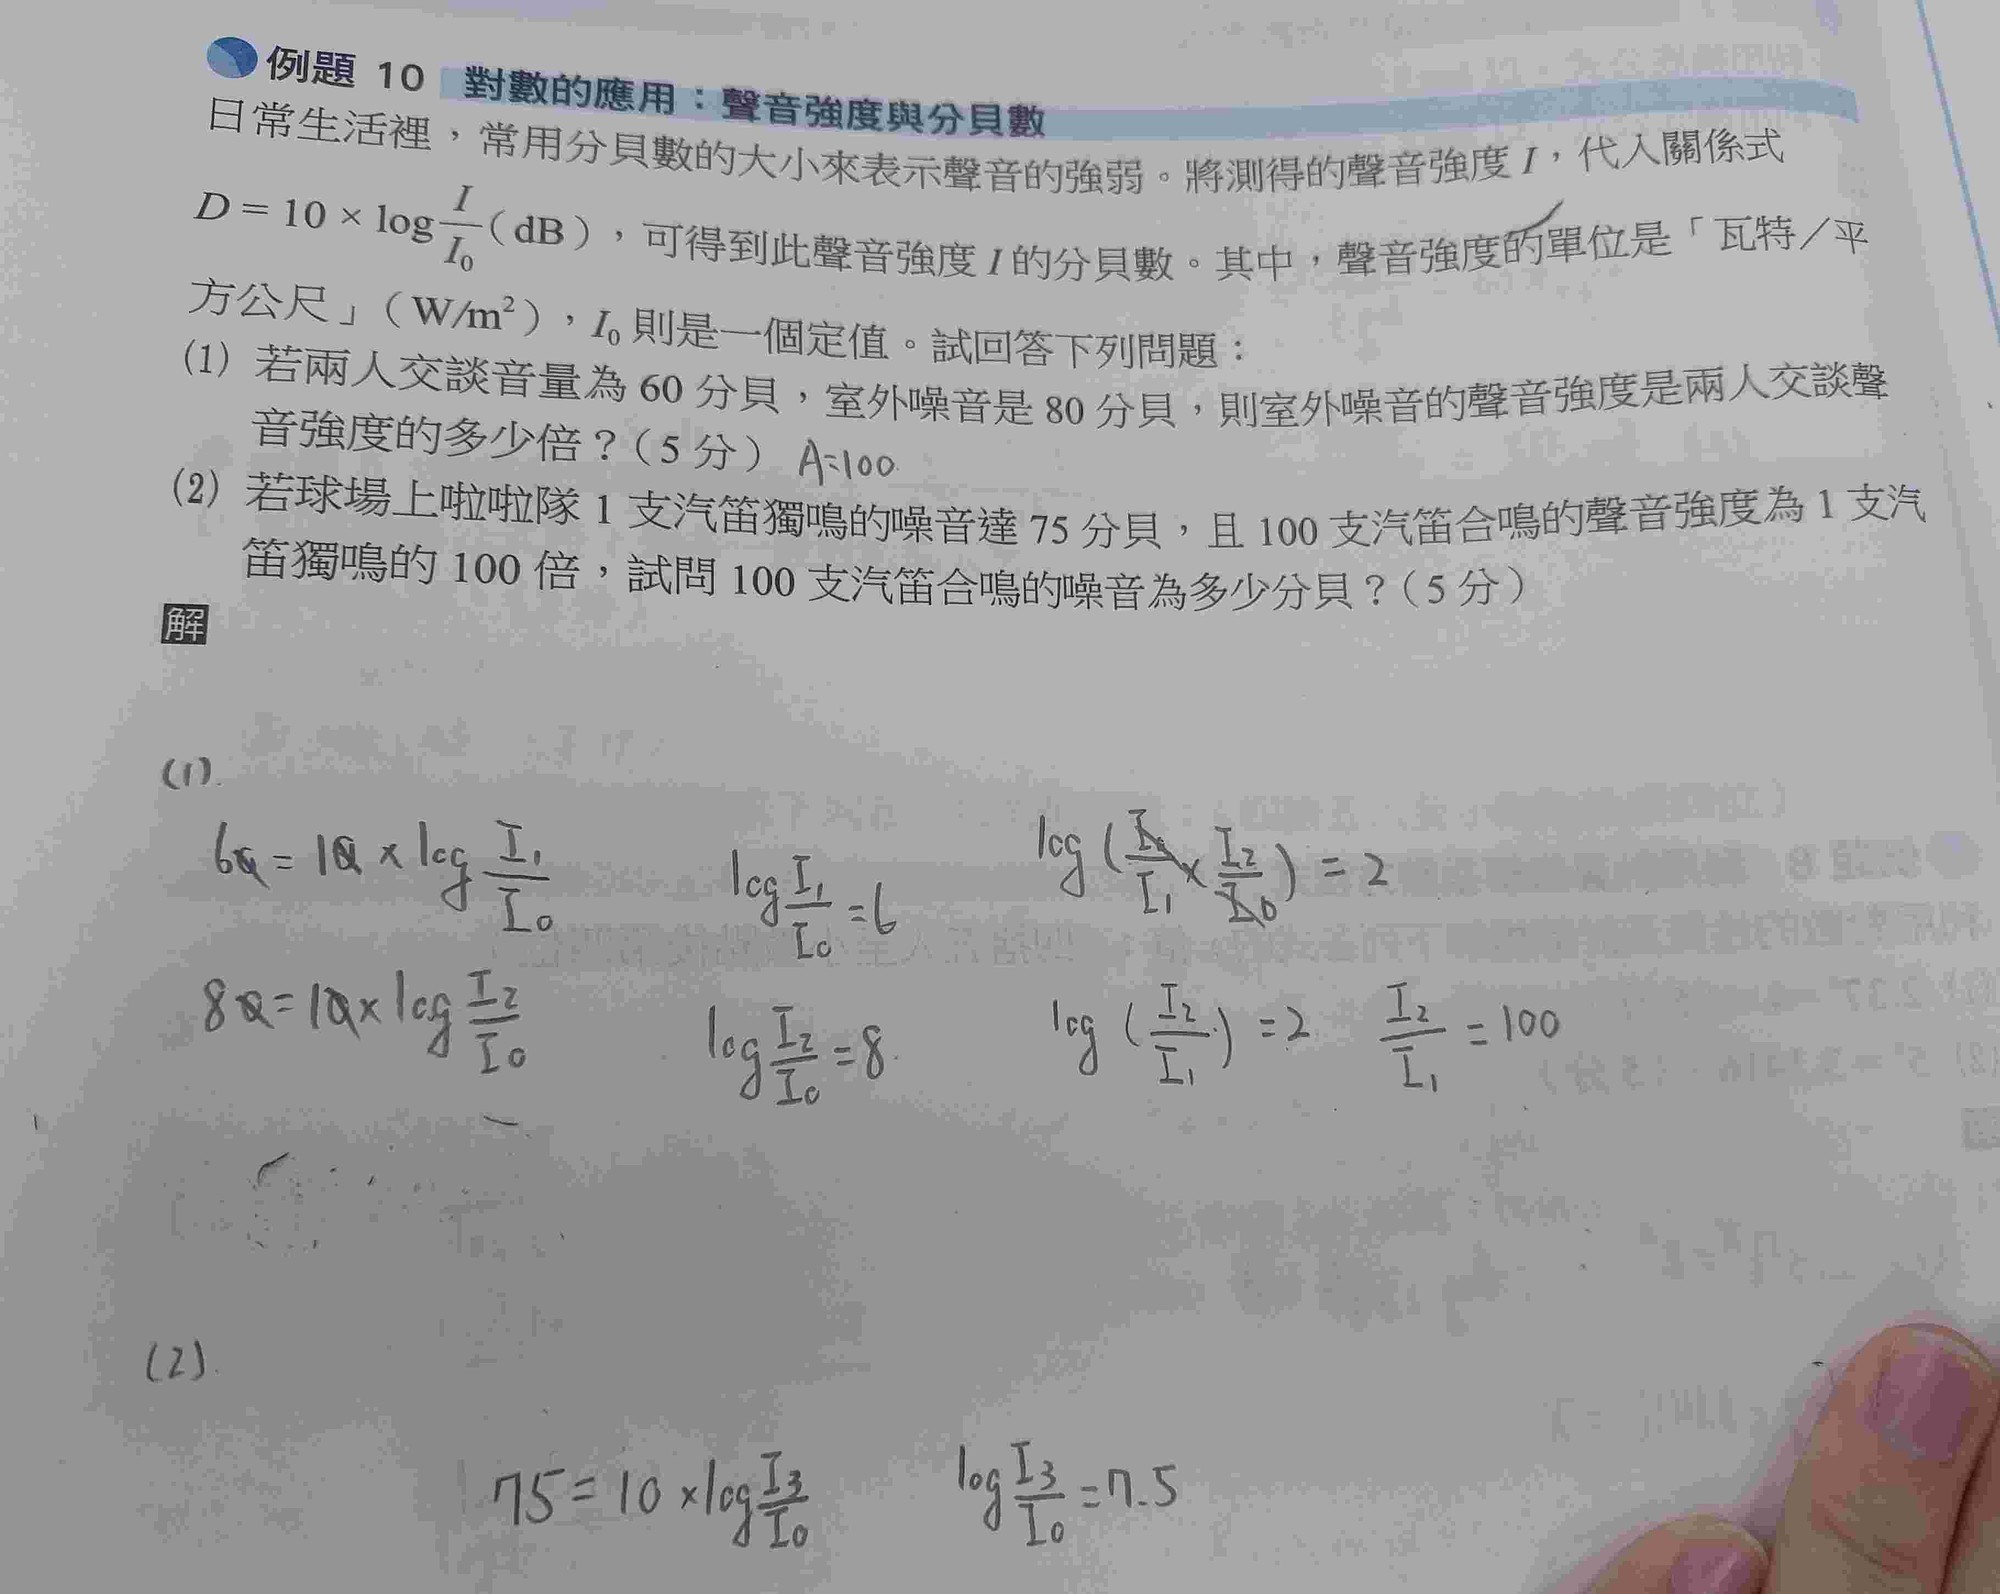 例題 10 對數的應用：聲音強度與分貝數
日常生活裡，常用分貝數的大小來表示聲音的強弱。將測得的聲音強度 I，代入關係式
D = 10 × log I/I₀ (dB)，可得到此聲音強度 I 的分貝數。其中，聲音強度的單位是「瓦特／平
方公尺」(W/m²)，I₀ 則是一個定值。試回答下列問題：
(1) 若兩人交談音量為 60 分貝，室外噪音是 80 分貝，則室外噪音的聲音強度是兩人交談聲
音強度的多少倍？(5 分) A=100
(2) 若球場上啦啦隊 1 支汽笛獨鳴的噪音達 75 分貝，且 100 支汽笛合鳴的聲音強度為 1 支汽
笛獨鳴的 100 倍，試問 100 支汽笛合鳴的噪音為多少分貝？(5 分)
解
(1).
60 = 10 × log I₁/I₀ log I₁/I₀ = 6 log (I₀/I₁ × I₂/I₀) = 2
80 = 10 × log I₂/I₀ log I₂/I₀ = 8. log (I₂/I₁) = 2 I₂/I₁ = 100
(2).
75 = 10 × log I₃/I₀ log I₃/I₀ = 7.5